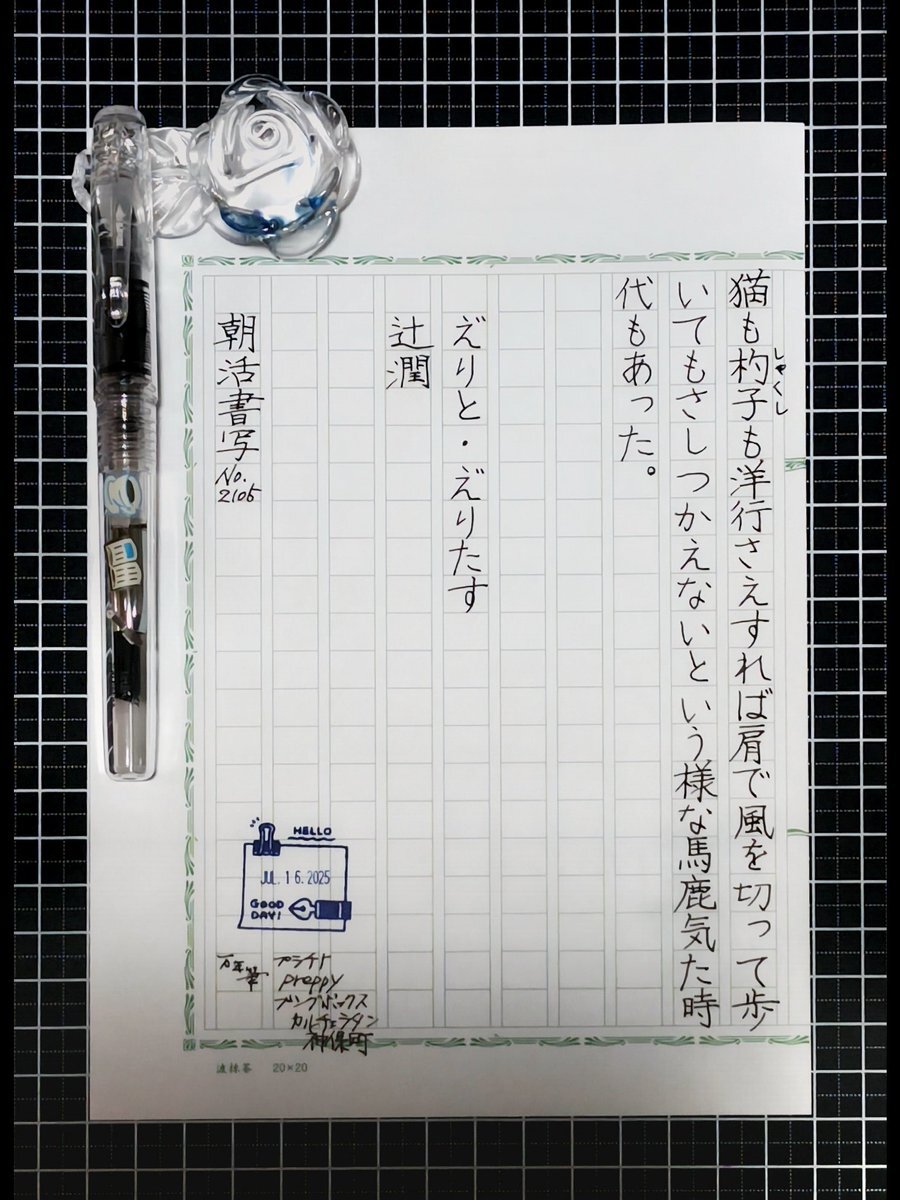 猫も杓子も洋行さえすれば肩で風を切って歩
しゃくし
いてもさしつかえないという様な馬鹿気た時
代もあった。
えりと・えりたす
辻潤
朝活書写
No.
2105
HELLO
JUL.16.2025
GOOD
DAY!
万年筆
プラチナ
preppy
ブングボックス
カルチェラタン
神保町
20×20